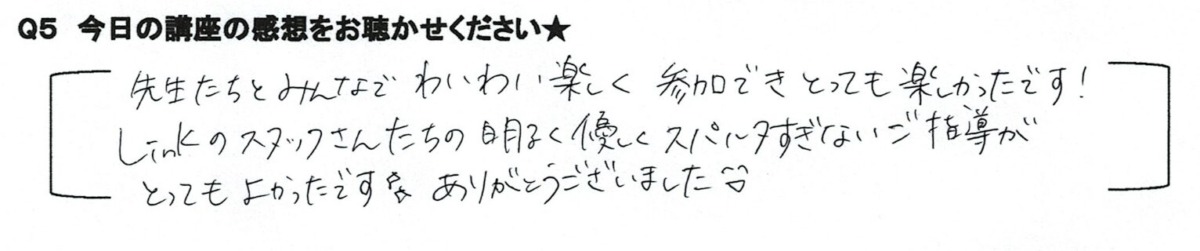 Q5 今日の講座の感想をお聴かせください★
先生たちとみんなで わいわい楽しく 参加でき とっても楽しかったです!
Linkのスタッフさんたちの 明るく優しく スパルタすぎないご指導が
とってもよかったです ありがとうございました